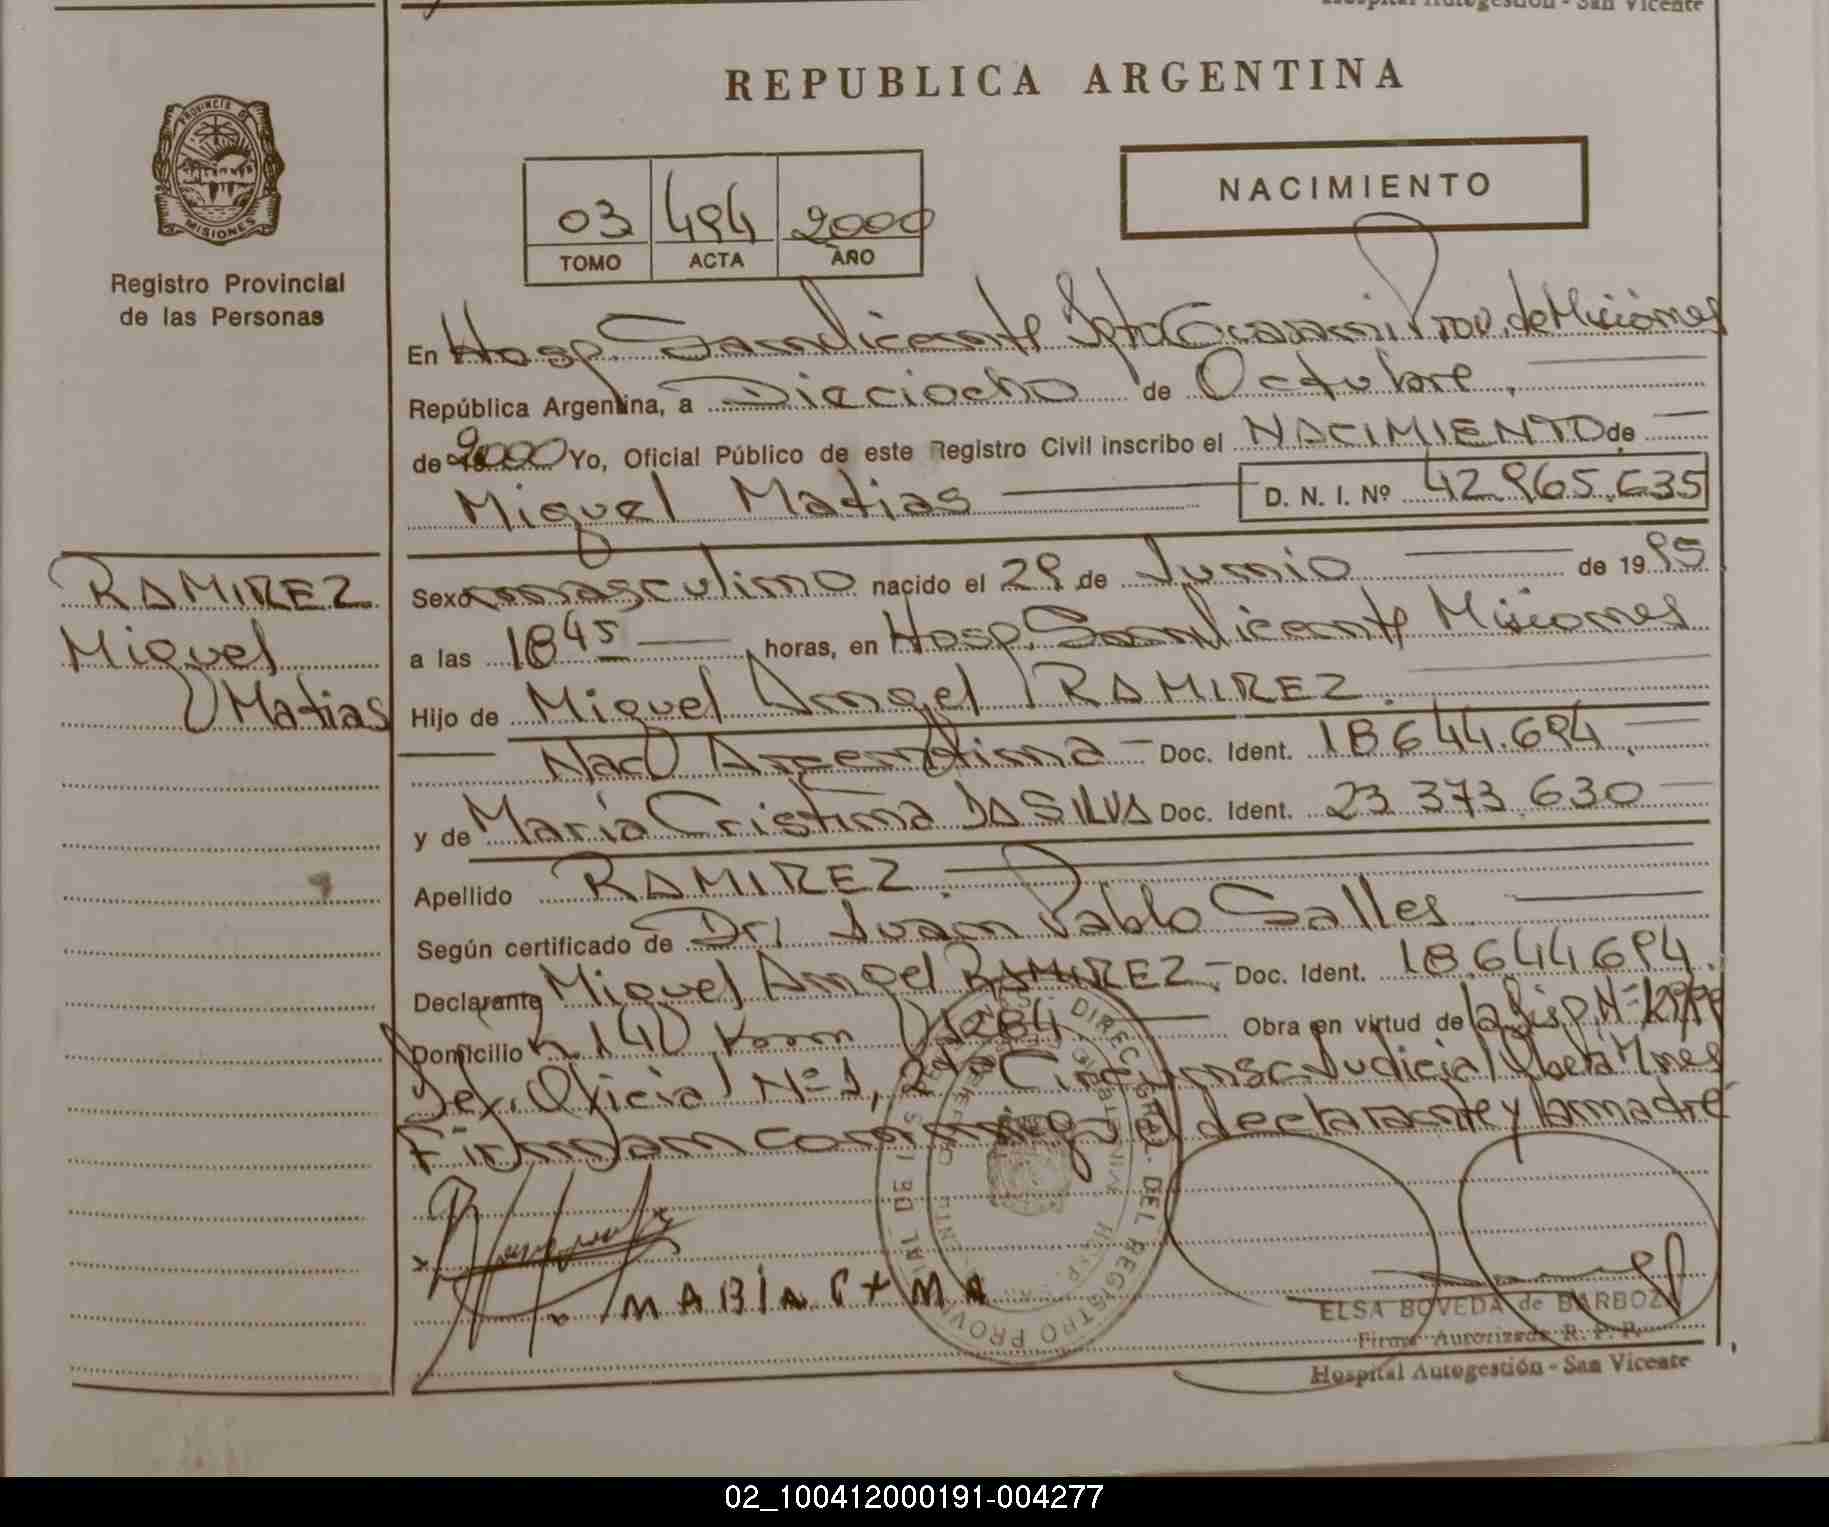 Hospital Autogestión - San Vicente
REPUBLICA ARGENTINA
PROVINCIA DE
MISIONES
Registro Provincial
de las Personas
NACIMIENTO
03 494 2000
TOMO ACTA AÑO
En Hosp. San Vicente Dpto Guarani Prov. de Misiones
República Argentina, a Dieciocho de Octubre,
de 2000 Yo, Oficial Público de este Registro Civil inscribo el NACIMIENTO de
Miguel Matias D. N. I. Nº 42.965.635
RAMIREZ
Miguel
Matias
Sexo masculino nacido el 29 de Junio de 1995
a las 18 45 horas, en Hosp. San Vicente Misiones
Hijo de Miguel Angel RAMIREZ.
Nac Argentina - Doc. Ident. 18 644.694.
y de María Cristina DA SILVA Doc. Ident. 23 373 630
Apellido RAMIREZ.
Según certificado de Dr. Juan Pablo Salles
Declarante Miguel Angel RAMIREZ - Doc. Ident. 18 644 694.
Domicilio 140 Km 1284 Obra en virtud de la Disp. Nº
Def. Oficial Nº 1, 2da Circunsc Judicial Oberá Mnes
Firman conmigo el declarante y la madre
MARIA
ELSA BOVEDA de BARBOZA
Firma Autorizada R. P. P.
Hospital Autogestión - San Vicente
02_100412000191-004277